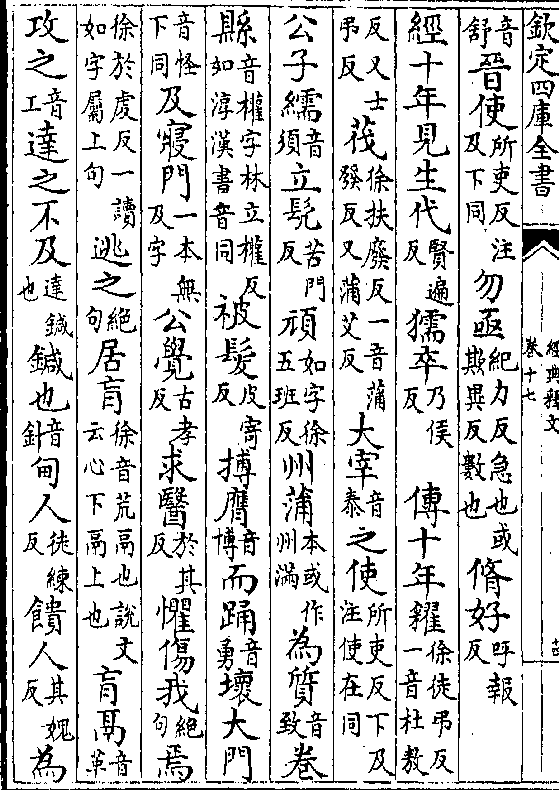 欽定四庫全書 經典釋文 卷十七 十四
音舒晉使所吏反注及下同勿亟紀力反急也或欺異反數也脩好呼報反
經十年見生代賢遍反獳卒乃侯反傳十年糴徐徒弔反一音杜敖
反又士弔反茷徐扶廢反一音蒲發反又蒲艾反大宰音泰之使所吏反下及注使在同
公子繻音須立髡苦門反頑如字徐五班反州蒲本或作州滿為質音致卷
縣音權字林立權反如淳漢書音同被髮皮寄反搏膺音博而踊音勇壞大門
音怪下同及寢門一本無及字公覺古孝反求醫於其反懼傷我絶句焉
徐於虔反一讀如字屬上句逃之絶句居肓徐音荒鬲也說文云心下鬲上也肓鬲音革
攻之音工達之不及達鍼也鍼也音針甸人徒練反饋人其媿反為